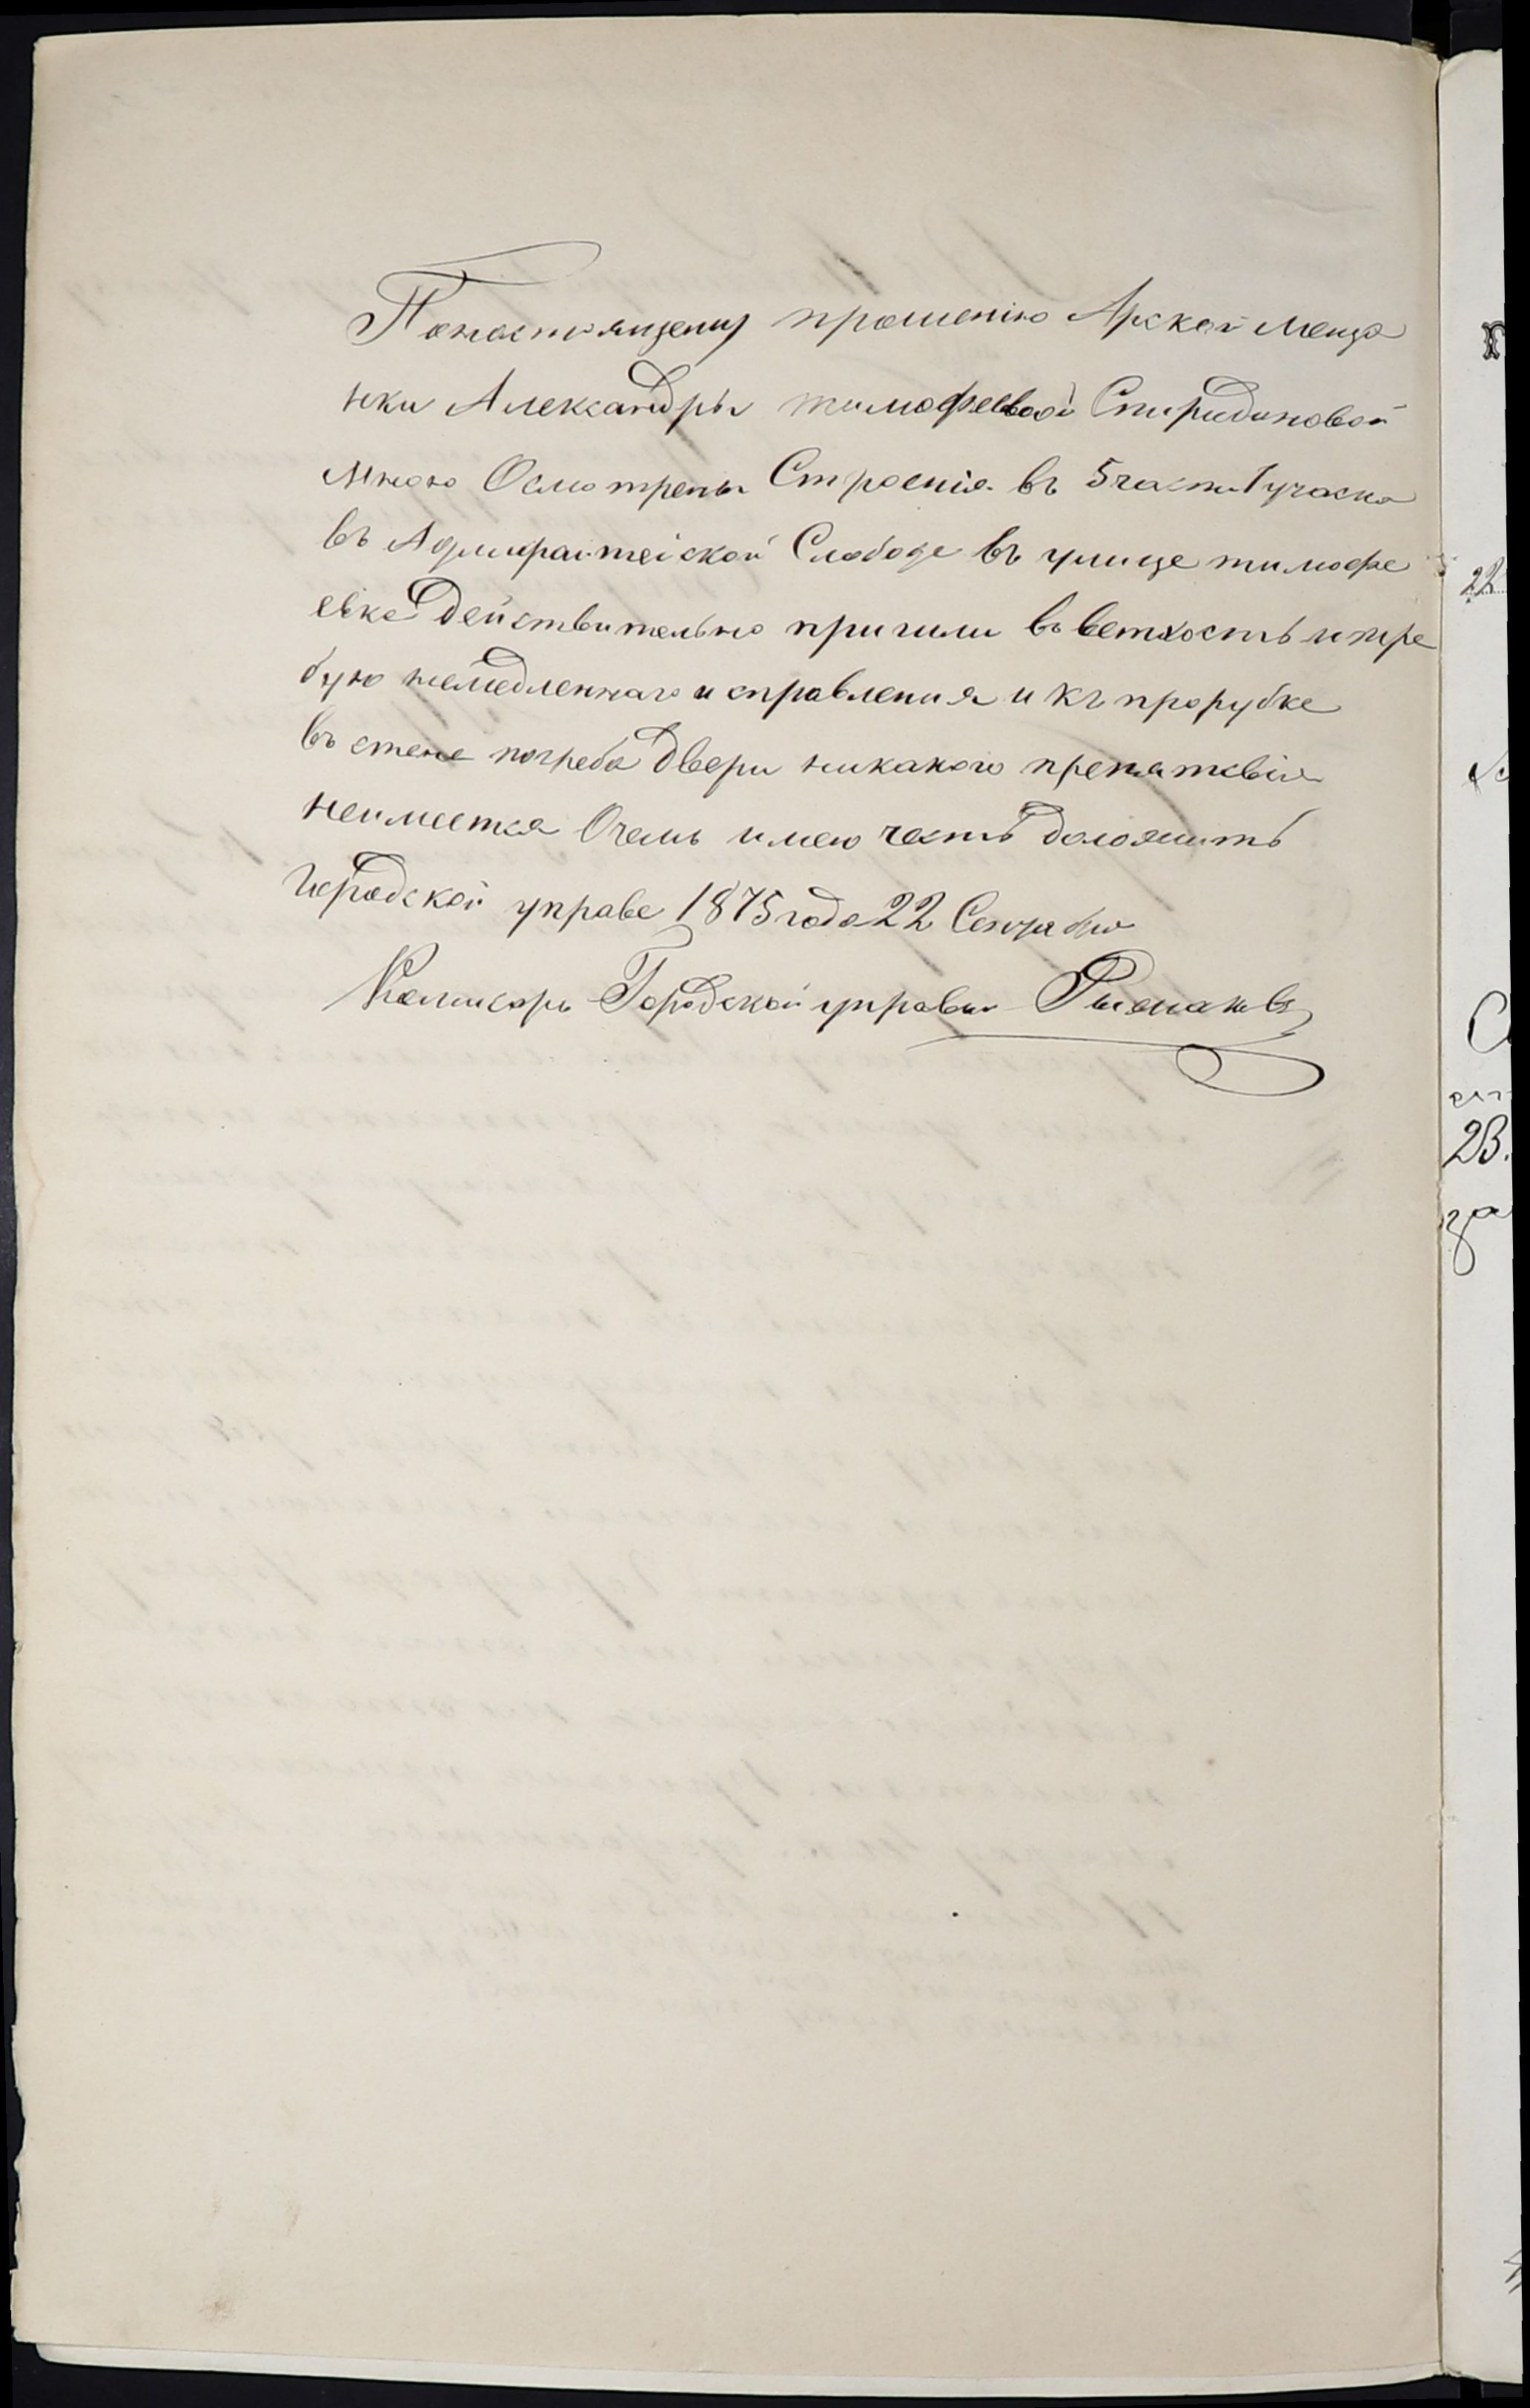 Понастоящему прошенію Арской меща
нки Александры тимофеевой Спиридоновой
мною Осмотрены Строенія въ 5 части 1 участка
въ Адмиралтейской Слободе въ улице тимофе
евке действительно пришли въ ветхость и тре
бую немедленнаго исправления и къ прорубке
въ стене погреба двери никакого препятсвия
неимеется Очемь имею честь доложить
Городской управе 1875 года 22 Сентября
Комисаръ Городской управы
22
23.
за